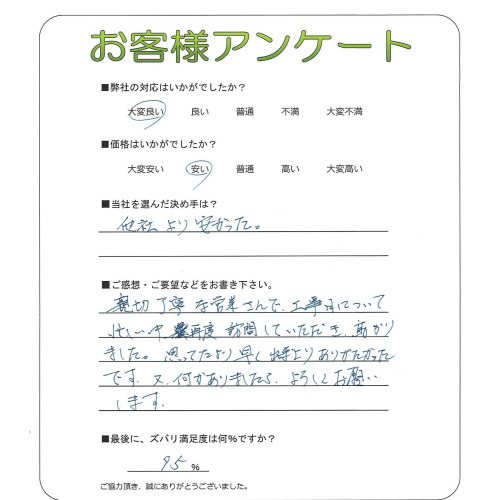 お客様アンケート
■弊社の対応はいかがでしたか？
大変良い 良い 普通 不満 大変不満
■価格はいかがでしたか？
大変安い 安い 普通 高い 大変高い
■当社を選んだ決め手は？
他社より安かった。
■ご感想・ご要望などをお書き下さい。
親切丁寧な営業さんで、工事について
忙しい中 再度訪問していただき、助かり
ました。思ってたより早く ありがたかった
です。又、何かありましたら、よろしくお願い
します。
■最後に、ズバリ満足度は何％ですか？
95 %
ご協力頂き、誠にありがとうございました。